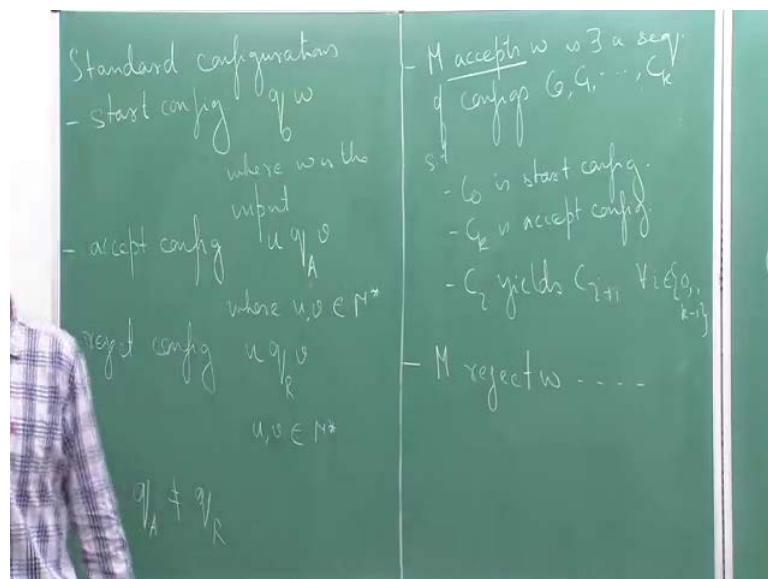 Standard configurations
- start config q₀ w
where w is the
input
- accept config u q_A v
where u,v ∈ Γ*
reject config u q_R v
u,v ∈ Γ*
q_A ≠ q_R
- M accepts w is ∃ a seq.
of configs C₀, C₁, ..., C_k
st
- C₀ is start config.
- C_k is accept config.
- C_i yields C_{i+1} ∀i∈{0,..
k-1}
- M reject w - - - -